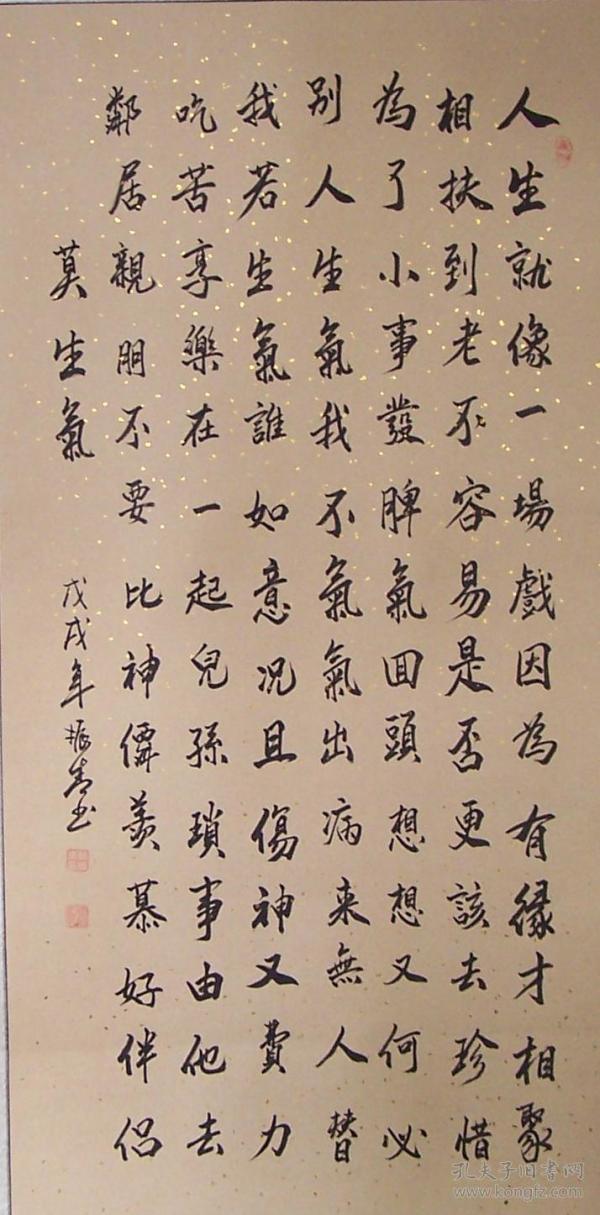 人生就像一場戲因為有緣才相聚
相扶到老不容易是否更該去珍惜
為了小事發脾氣回頭想想又何必
別人生氣我不氣氣出病來無人替
我若生氣誰如意況且傷神又費力
吃苦享樂在一起兒孫瑣事由他去
鄰居親朋不要比神僊羨慕好伴侶
莫生氣
戊戌年振青书
孔夫子旧书网
www.kongfz.com